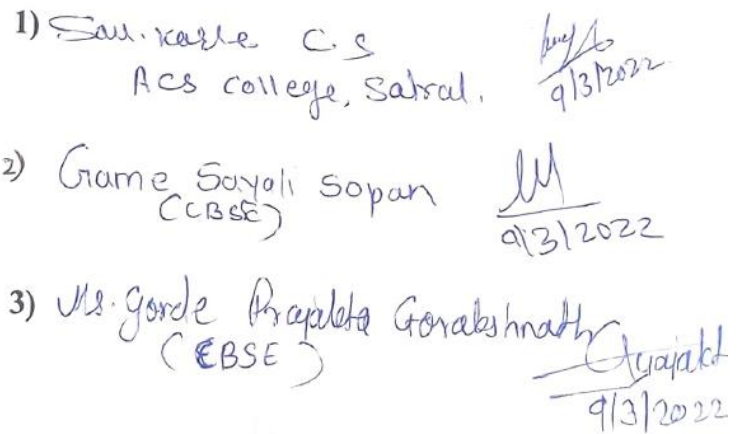 1) Sau. Karle C.S
ACS College, Satral.
9/3/2022
2) Game Sayali Sopan
(CBSE)
9/3/2022
3) Ms. Gorde Prajakta Gorakshnath
(CBSE)
9/3/2022